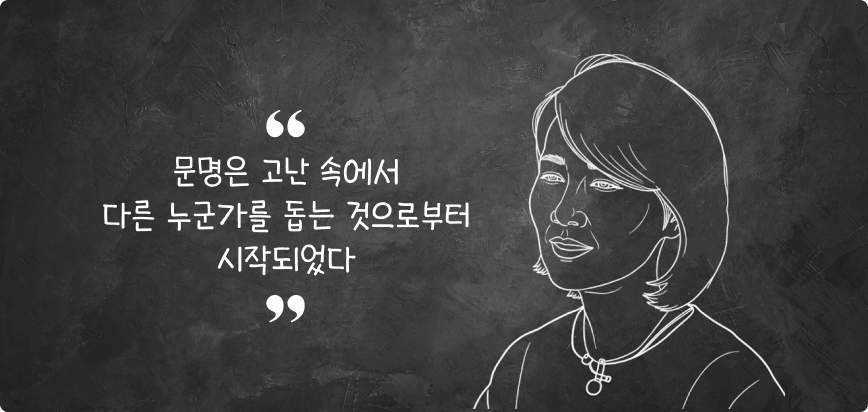 “
문명은 고난 속에서
다른 누군가를 돕는 것으로부터
시작되었다
”